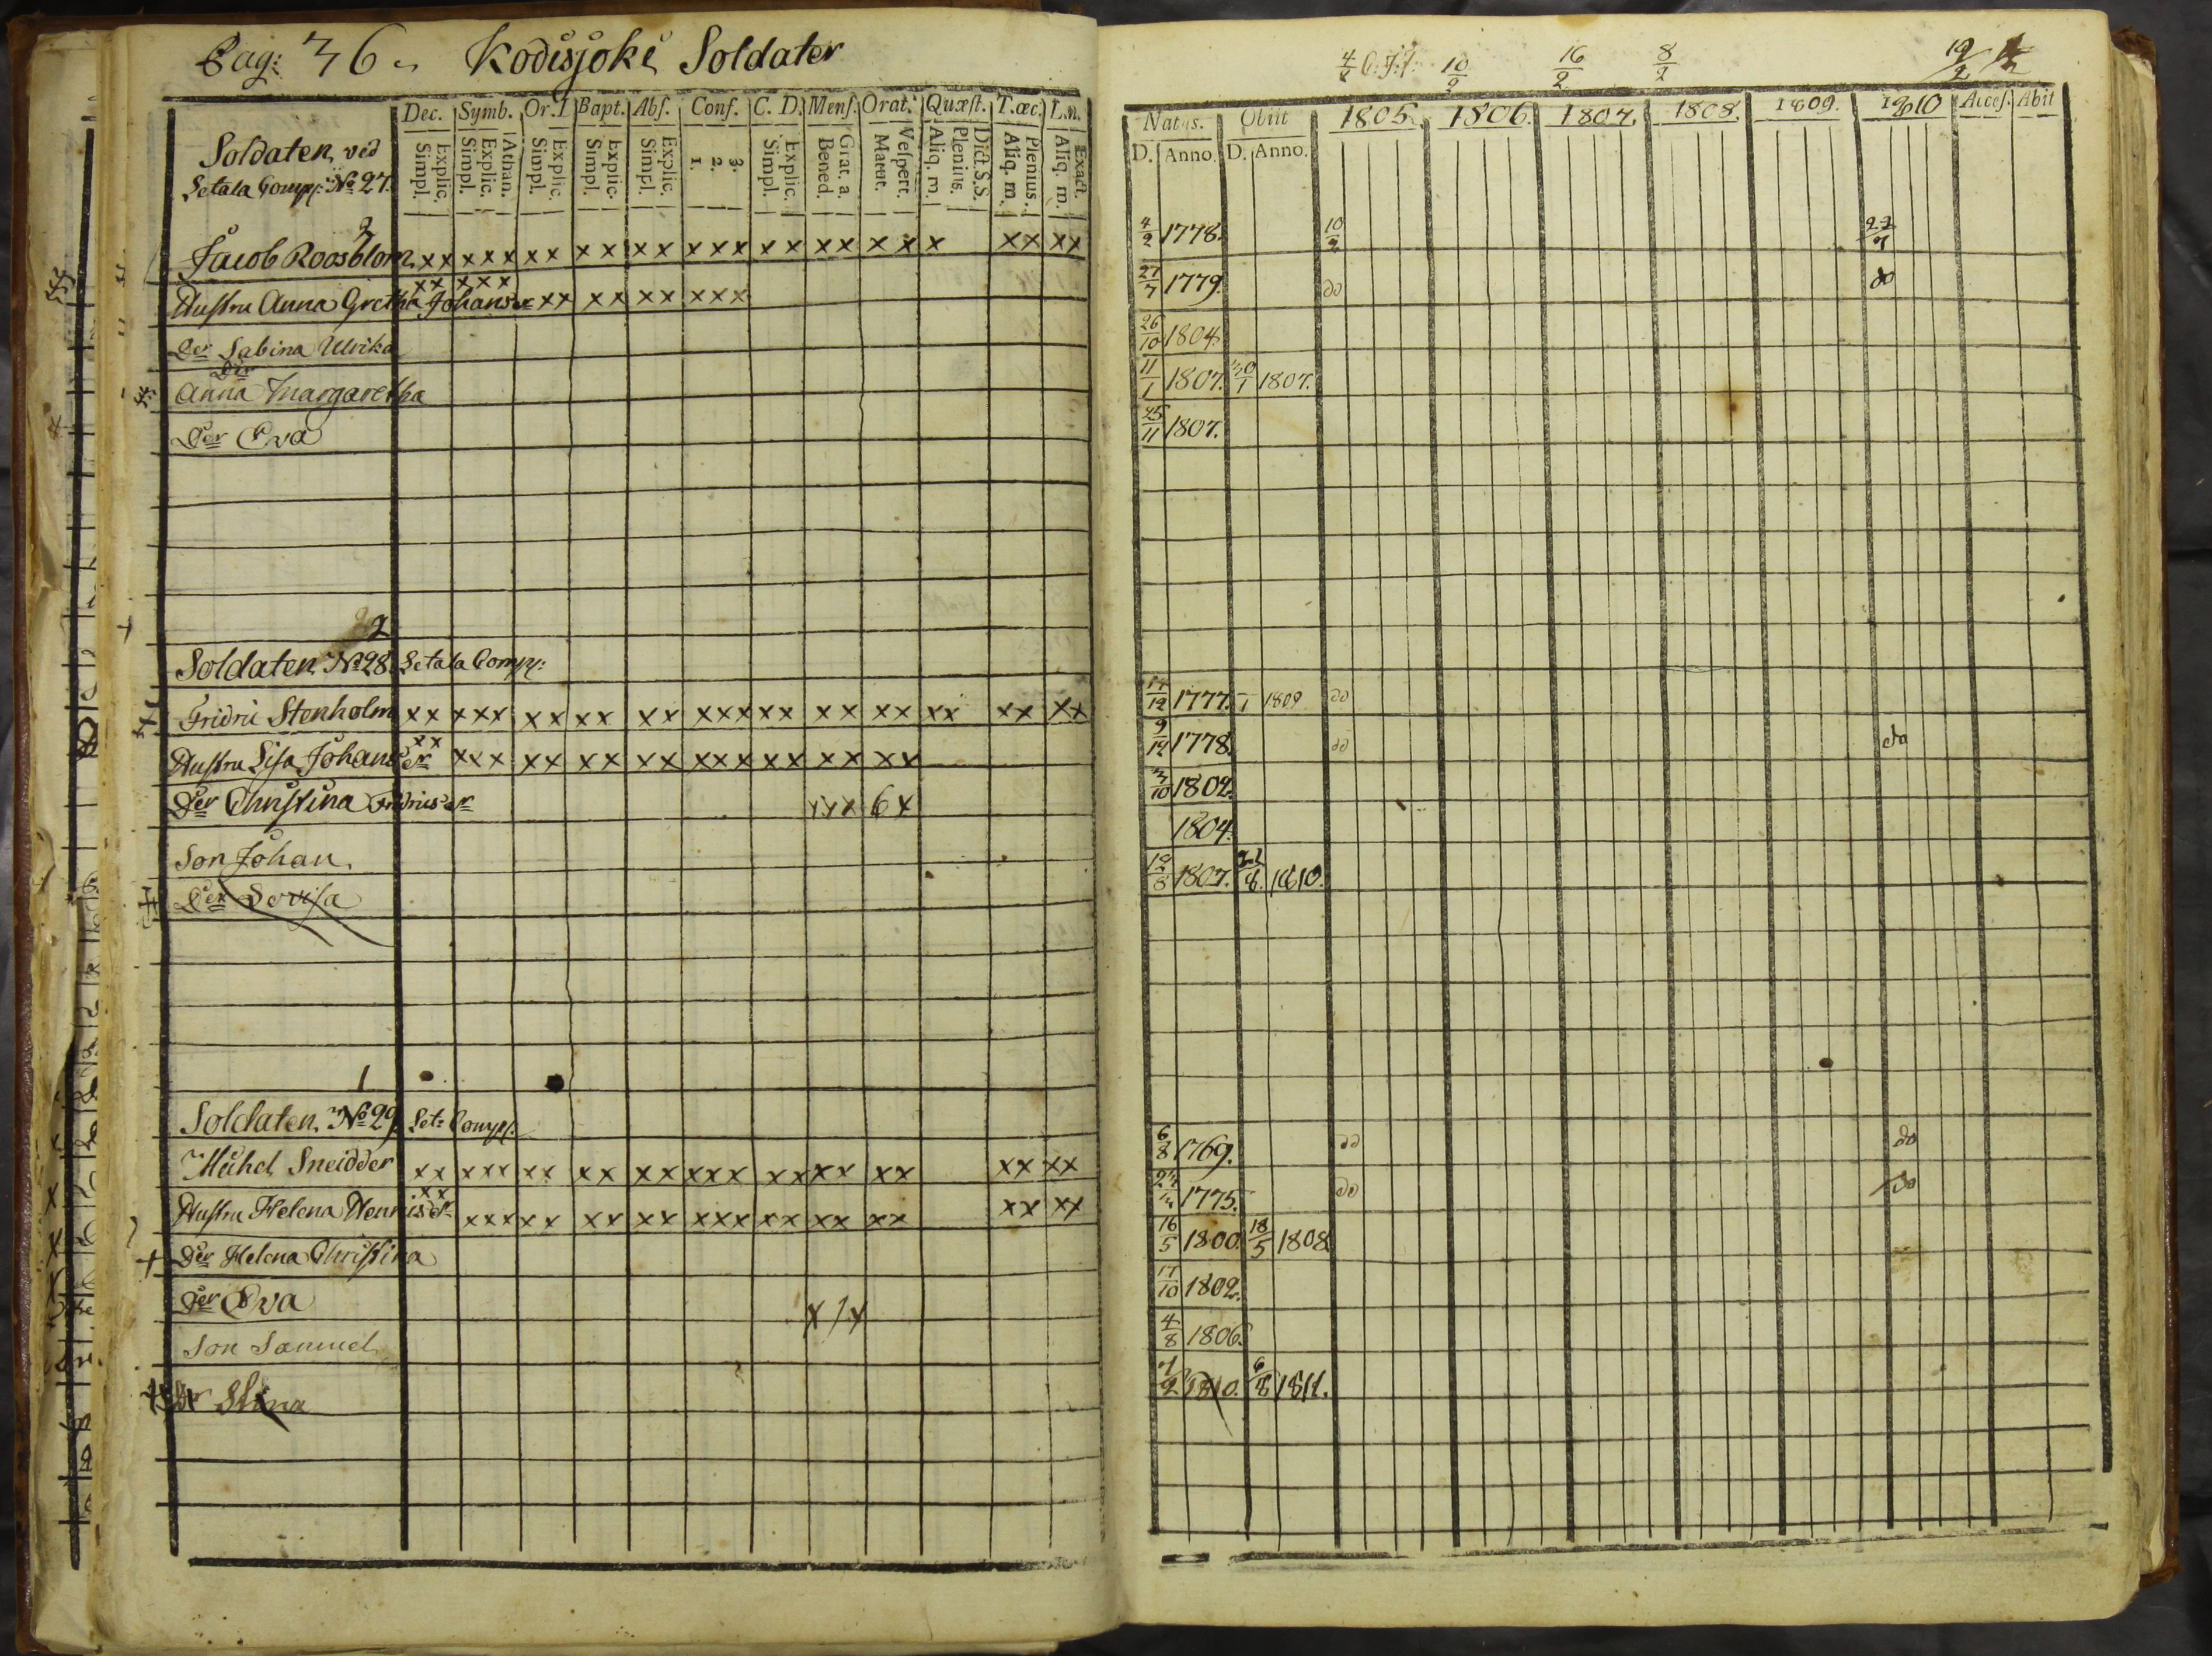 Pag: 36. Kodisjoki Soldater
Dec. Symb. Or.I Bapt. Abſ. Conf. C. D. Menſ. Orat. Quæſt. T.œc. L.n.
Explic. Simpl. Athan. Explic. Simpl. Explic. Simpl. Explic. Simpl. Explic. Simpl. 3. 2. 1. Explic. Simpl. Grat. a. Bened. Veſpert. Matut. Dict.S.S. Plenius. Aliq. m. Plenius. Aliq. m. Exact. Aliq. m.
Soldaten ved
Setala Comp: No 27.
Jacob Roosblom xx xxx xx xx xx xxx xx xx xx x xx xx
Hustru Anna Gretha Johansdr xx xxx xx xx xx xxx
Der Sabina Ulrika
Der
Anna Margaretha
Der Eva
2
Soldaten No 28. Setala Comp:
Fridric Stenholm xx xxx xx xx xx xxx xx xx xx xx xx xx
Hustru Lisa Johansder xx xxx xx xx xx xxx xx xx xx
Der Christina Fridricsdr xxx 6x
Son Johan.
Der Lovisa
1
Soldaten No 29 Set: Comp:
Michel Sneidder xx xxx xx xx xx xxx xx xx xx xx xx
Hustru Helena Henricsdr xx xxx xx xx xx xxx xx xx xx xx xx
Der Helena Christina
Der Eva x/x
Son Samuel
Dr Stina
10/2 16/2 8/2 19/2
Natus. Obiit 1805. 1806. 1807. 1808. 1809. 1810 Acceſ. Abit
D. Anno. D. Anno.
4/2 1778. 10/2
27/7 1779. do do
26/10 1804.
11/1 1807. 30/1 1807.
25/11 1807.
14/12 1777. 1809 do
9/12 1778. do do
3/10 1802.
1804.
18/8 1807. 1810.
6/8 1769. do do
1775. do do
16/5 1800. 18/5 1808
17/10 1802.
4/8 1806.
1810. 6/8 1811.